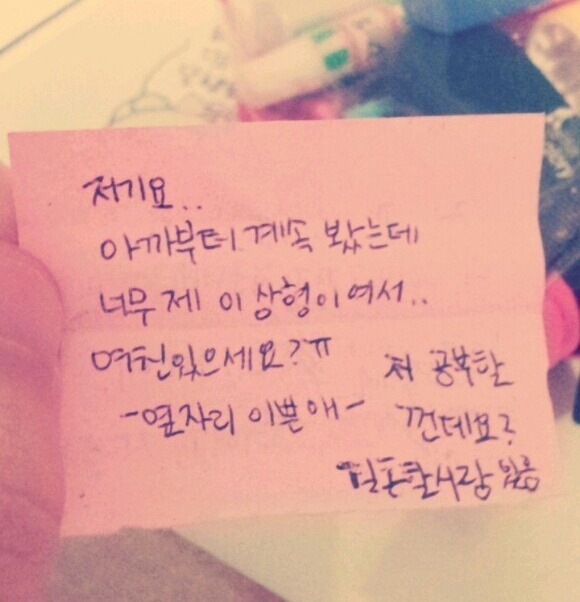 저기요..
아까부터 계속 봤는데
너무 제 이상형이여서..
여친있으세요?ㅠ
-옆자리 이쁜애-
저 공부할
껀데요?
결혼할사람 있음